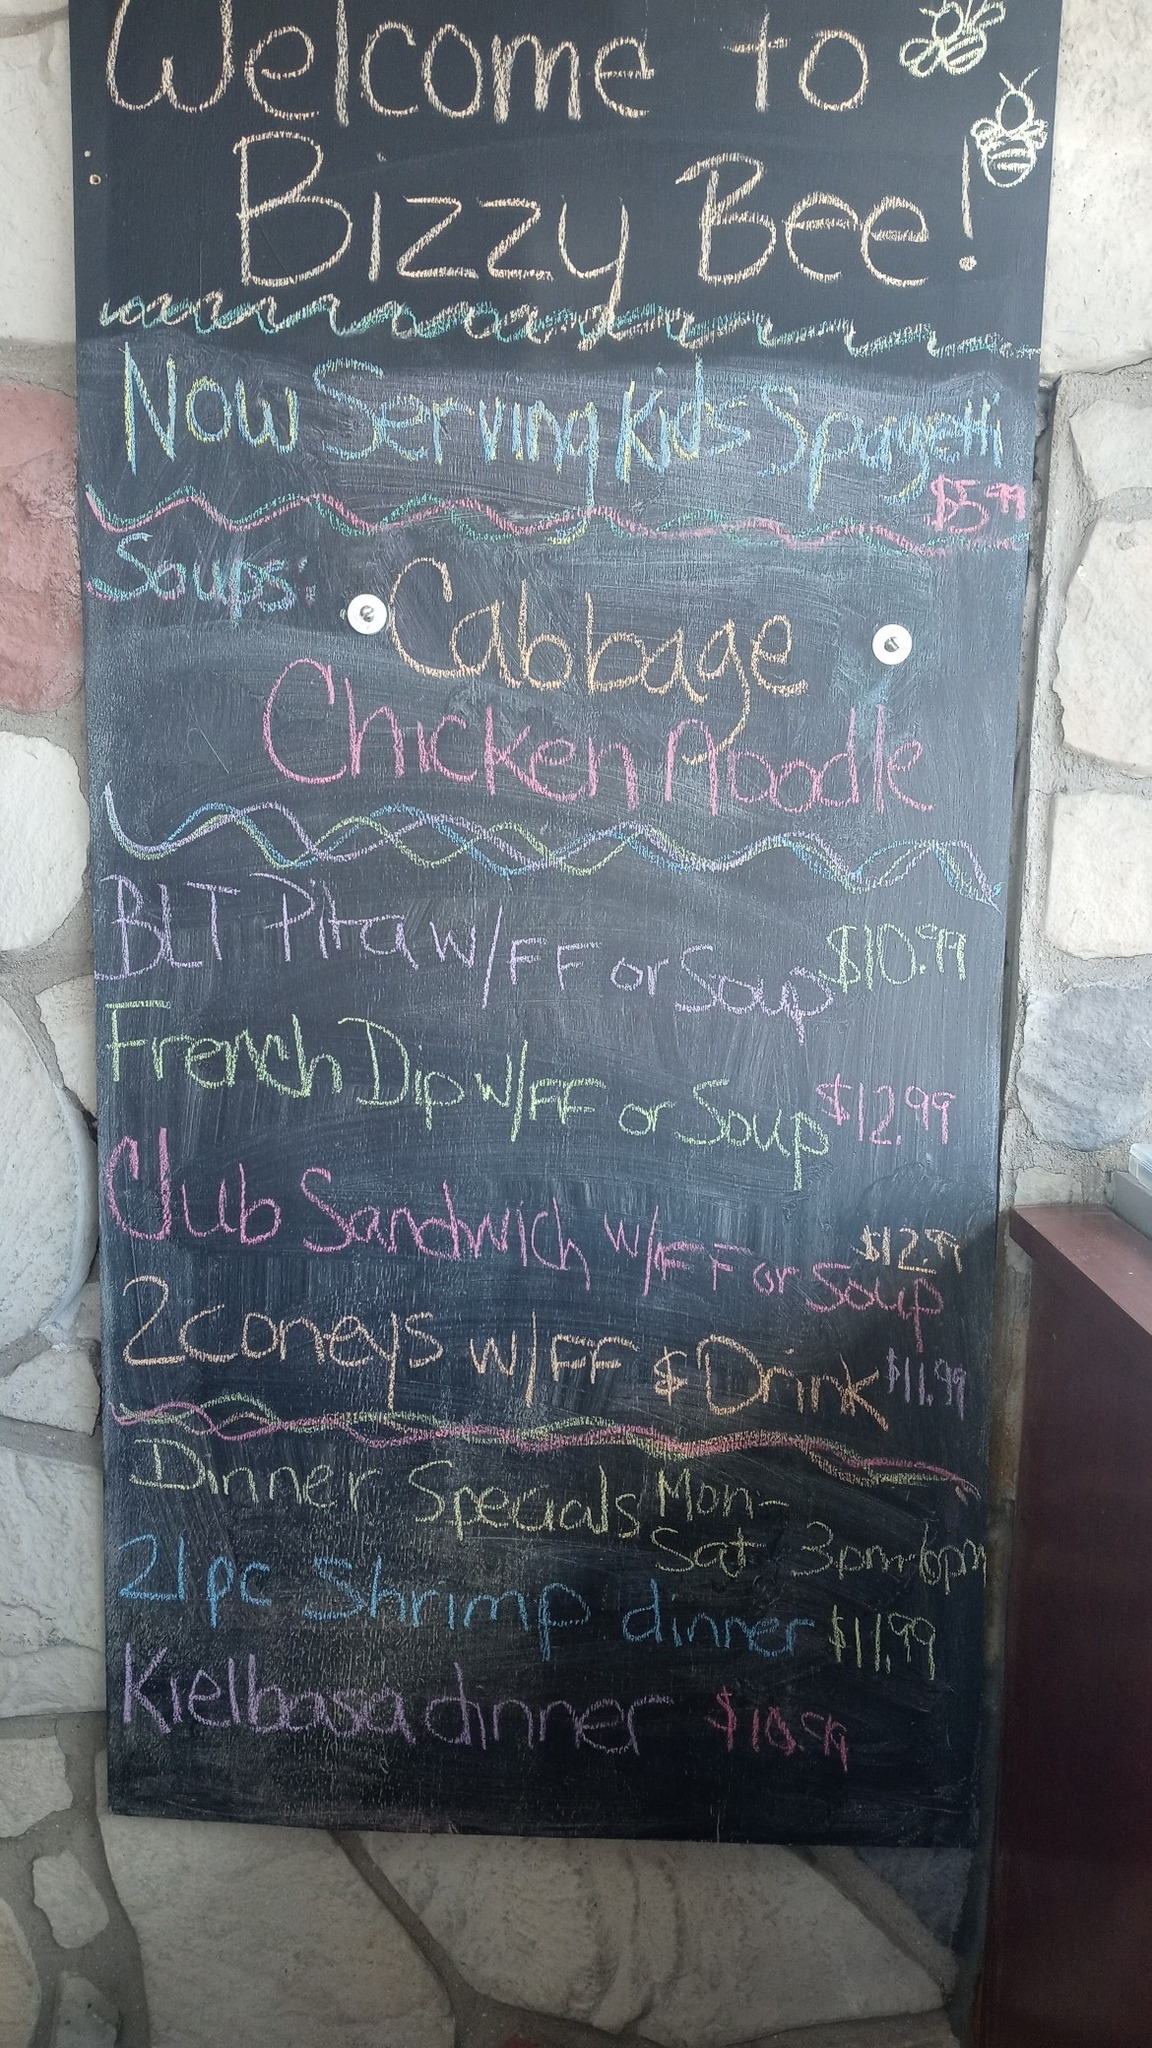 Welcome to
Bizzy Bee!
Now Serving Kids Spagetti
$5.99
Soups:
Cabbage
Chicken Noodle
BLT Pita w/FF or Soup $10.99
French Dip w/FF or Soup $12.99
Club Sandwich w/FF or Soup $12.99
2 coneys w/FF $ Drink $11.99
Dinner Specials Mon-
Sat 3pm-6pm
21 pc Shrimp dinner $11.99
Kielbasa dinner $10.99